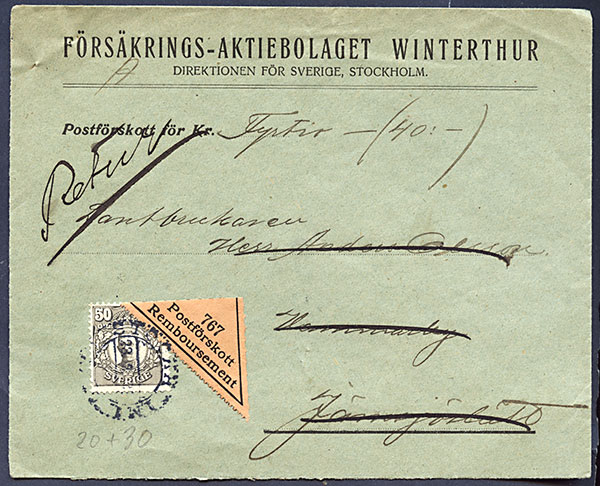 FÖRSÄKRINGS-AKTIEBOLAGET WINTERTHUR
DIREKTIONEN FÖR SVERIGE, STOCKHOLM.
A
Postförskott för Kr. Fyrtio — (40:-)
Retur
Lantbrukaren
Herr Anders
50
SVERIGE
767
Postförskott
Remboursement
20 + 30